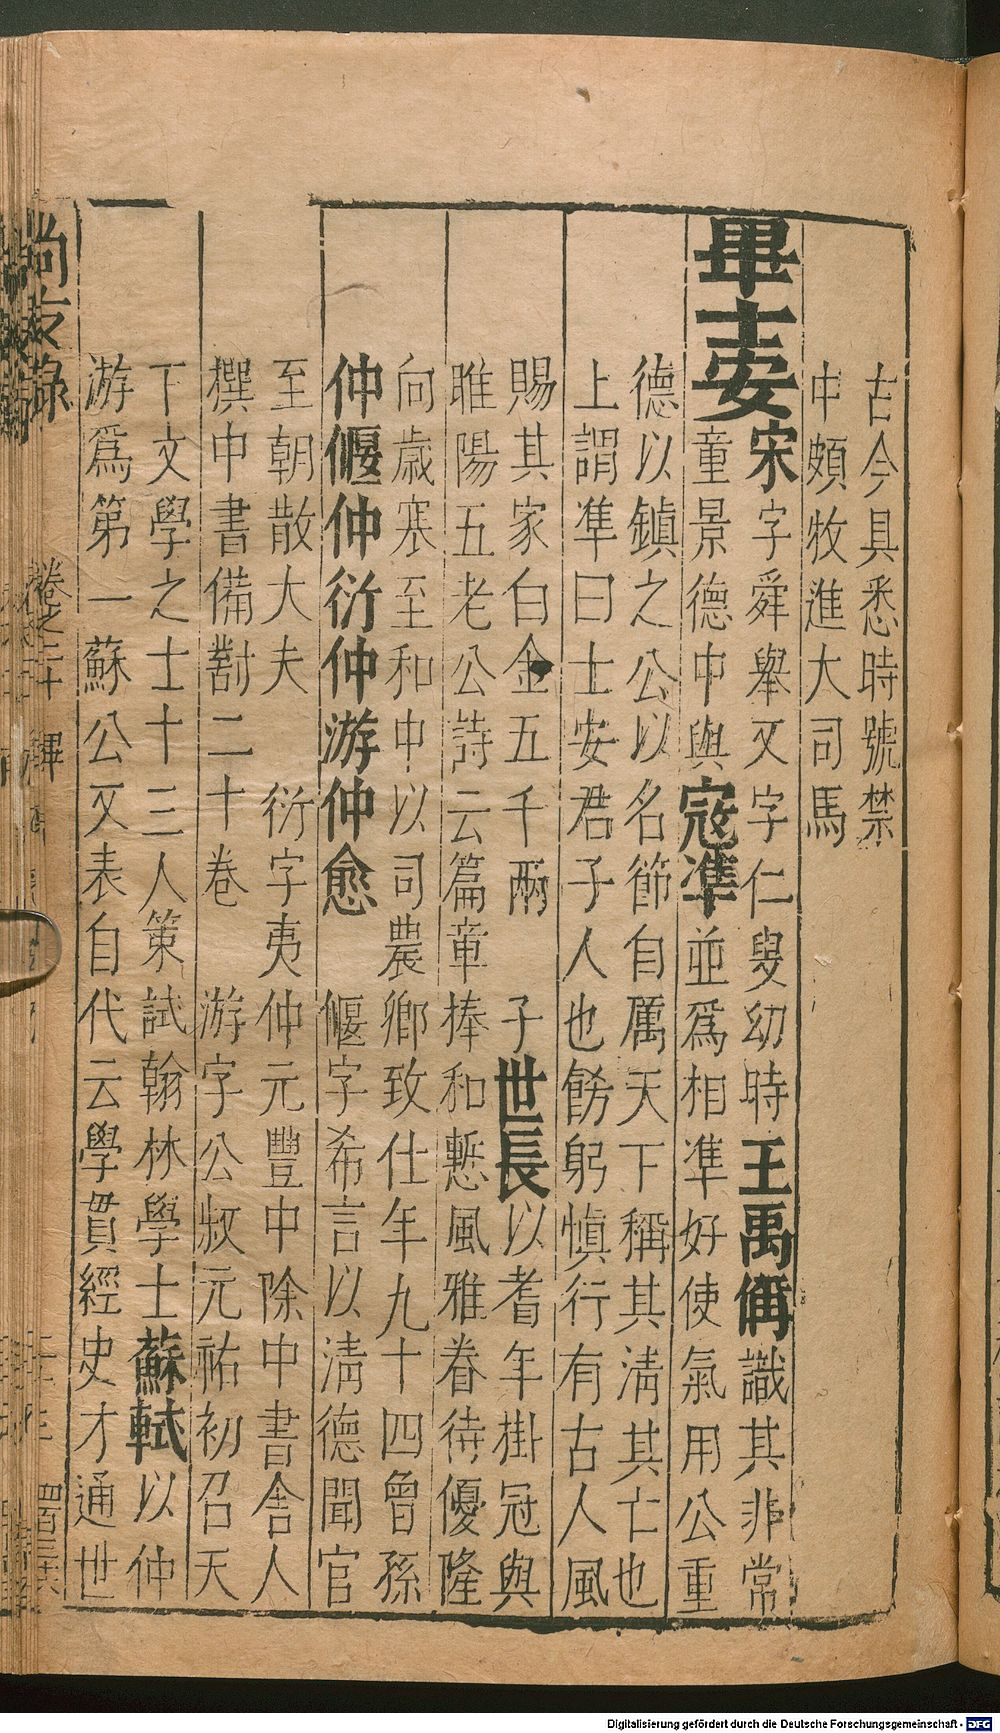 古今具悉時號禁
中頗牧進大司馬
畢士安宋字舜舉又字仁叟幼時王禹偁識其非常
童景德中與寇準並爲相準好使氣用公重
德以鎮之公以名節自厲天下稱其清其亡也
上謂準曰士安君子人也飭躬慎行有古人風
賜其家白金五千兩 子世長以耆年掛冠與
睢陽五老公詩云篇章捧和慙風雅眷待優隆
向歲寒至和中以司農卿致仕年九十四曾孫
仲偃仲衍仲游仲愈 偃字希言以清德聞官
至朝散大夫 衍字夷仲元豐中除中書舍人
撰中書備對二十卷 游字公叔元祐初召天
下文學之士十三人策試翰林學士蘇軾以仲
游爲第一蘇公又表自代云學貫經史才通世
尚友錄 卷之二十 畢
Digitalisierung gefördert durch die Deutsche Forschungsgemeinschaft - DFG